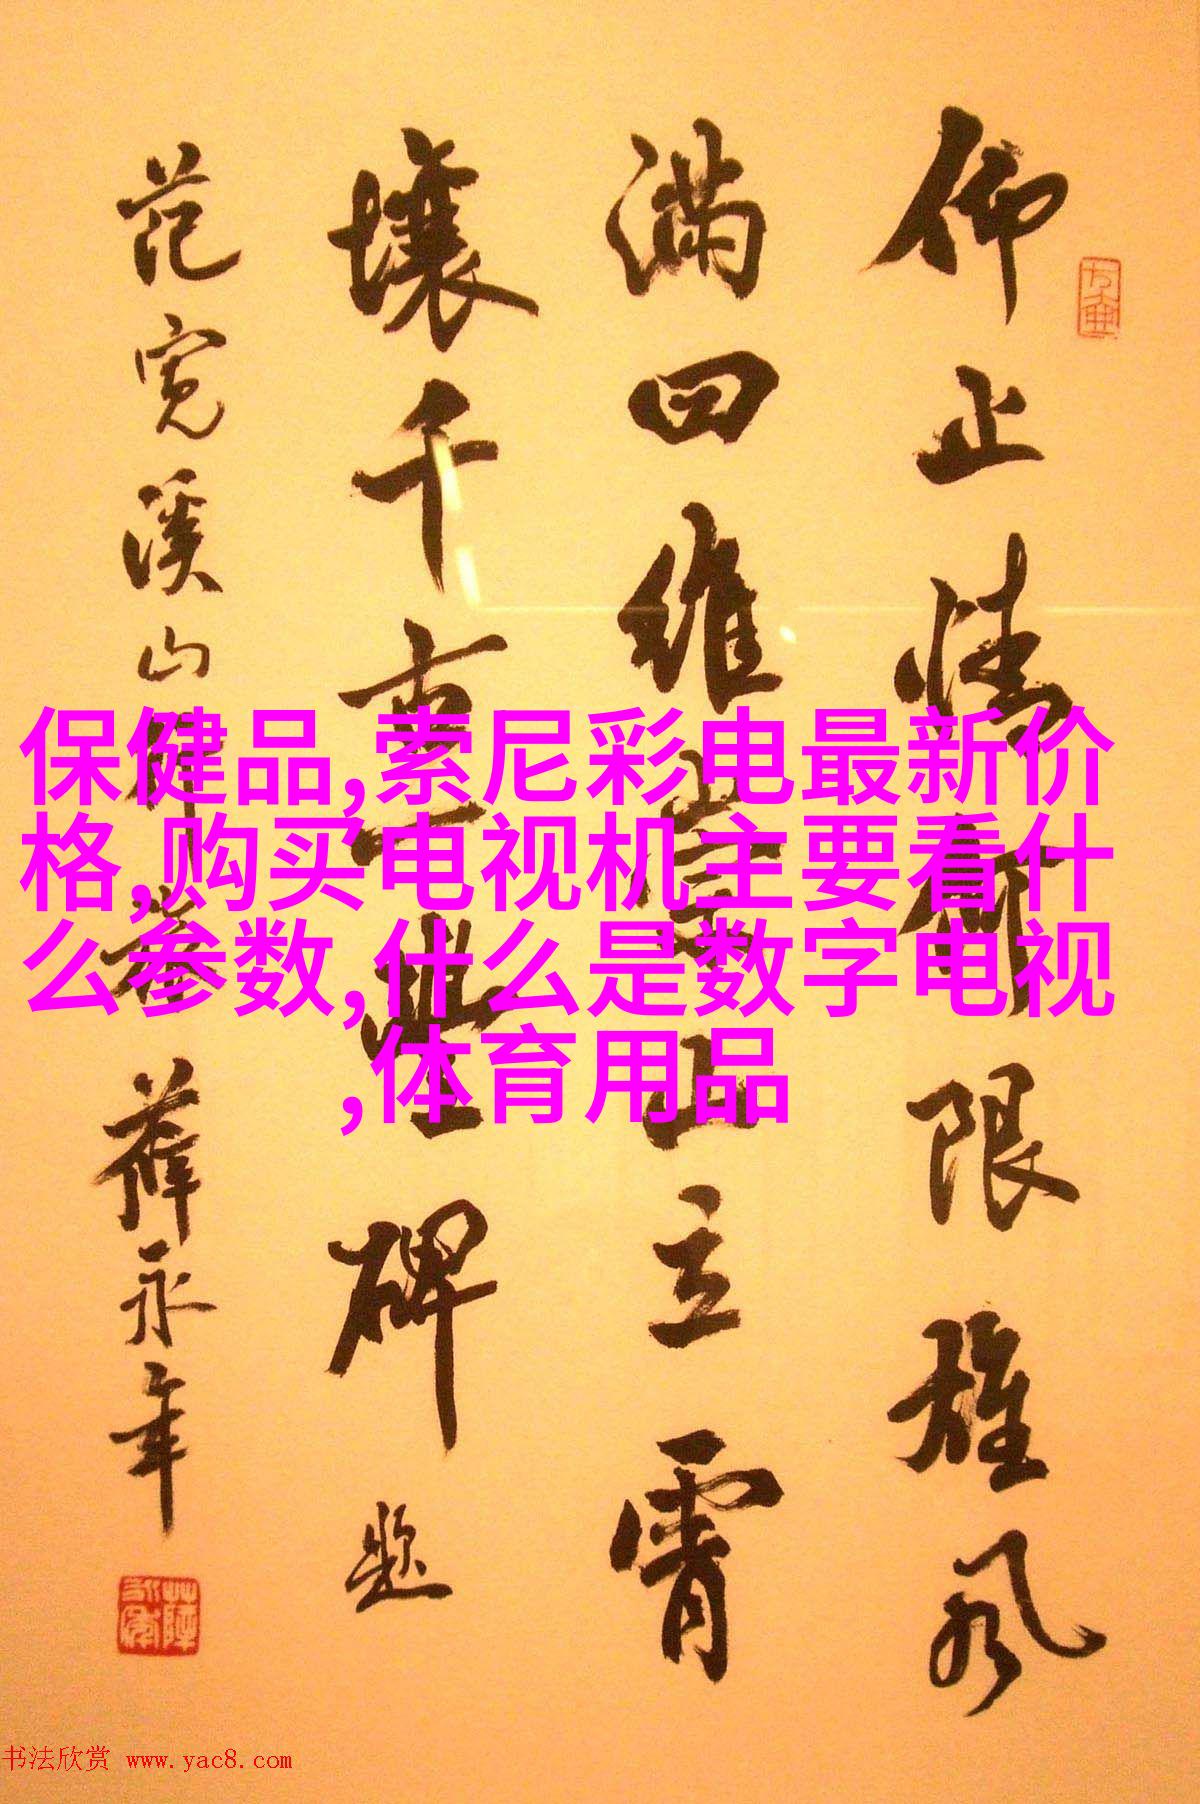 仰止情何限雄风
满四维岩山立霄
壤千重一丰碑
题
范宽溪山
薛永年
保健品,索尼彩电最新价
格,购买电视机主要看什
么参数,什么是数字电视
,体育用品
书法欣赏 www.yac8.com